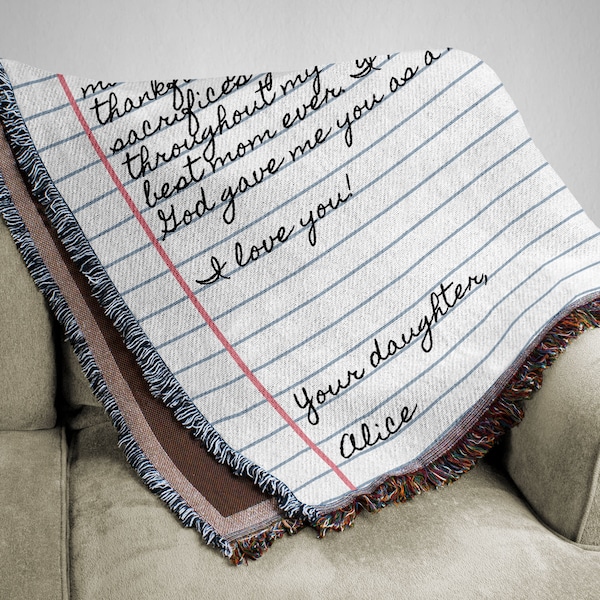 thankf
sacrifices
throughout my
best mom ever.
God gave me you as a
I love you!
Your daughter,
Alice